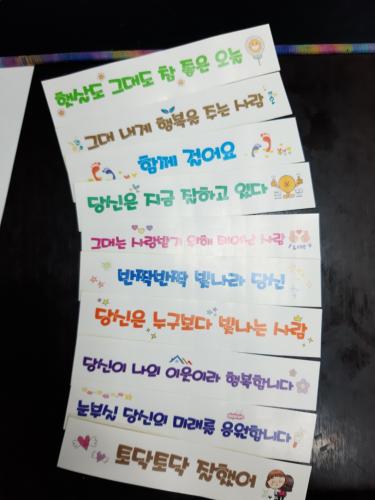 햇살도 그대도 참 좋은 오늘
그대 내게 행복을 주는 사람
함께 걸어요
당신은 지금 잘하고 있다
그대는 사랑받기 위해 태어난 사람
반짝반짝 빛나라 당신
당신은 누구보다 빛나는 사람
당신이 나의 이웃이라 행복합니다
눈부신 당신의 미래를 응원합니다
토닥토닥 잘했어